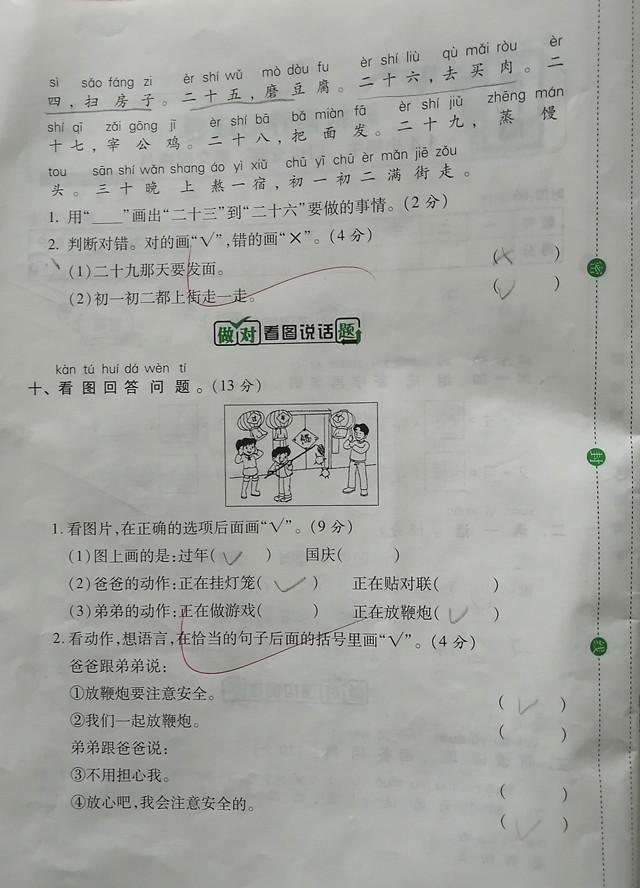 sì sǎo fáng zi èr shí wǔ mò dòu fu èr shí liù qù mǎi ròu èr
四，扫房子。二十五，磨豆腐。二十六，去买肉。二
shí qī zǎi gōng jī èr shí bā bǎ miàn fā èr shí jiǔ zhēng mán
十七，宰公鸡。二十八，把面发。二十九，蒸馒
tou sān shí wǎn shang áo yì xiǔ chū yī chū èr mǎn jiē zǒu
头。三十晚上熬一宿，初一初二满街走。
1. 用“____”画出“二十三”到“二十六”要做的事情。(2分)
2. 判断对错。对的画“√”，错的画“×”。(4分)
(1)二十九那天要发面。 (×)
(2)初一初二都上街走一走。 (√)
做对看图说话题
kàn tú huí dá wèn tí
十、看图回答问题。(13分)
福
1. 看图片，在正确的选项后面画“√”。(9分)
(1)图上画的是：过年(√) 国庆( )
(2)爸爸的动作：正在挂灯笼(√) 正在贴对联( )
(3)弟弟的动作：正在做游戏( ) 正在放鞭炮(√)
2. 看动作，想语言，在恰当的句子后面的括号里画“√”。(4分)
爸爸跟弟弟说：
①放鞭炮要注意安全。 (√)
②我们一起放鞭炮。 ( )
弟弟跟爸爸说：
③不用担心我。 ( )
④放心吧，我会注意安全的。 (√)
密
封
线